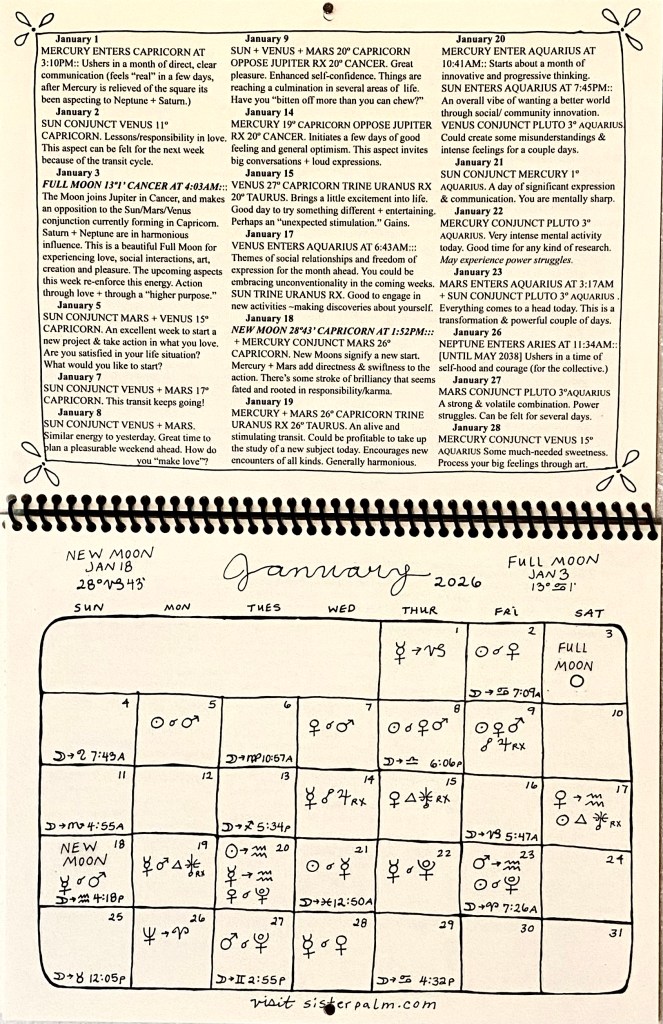 January 1
MERCURY ENTERS CAPRICORN AT
3:10PM:: Ushers in a month of direct, clear
communication (feels "real" in a few days,
after Mercury is relieved of the square its
been aspecting to Neptune + Saturn.)
January 2
SUN CONJUNCT VENUS 11º
CAPRICORN. Lessons/responsibility in love.
This aspect can be felt for the next week
because of the transit cycle.
January 3
FULL MOON 13º1' CANCER AT 4:03AM:::
The Moon joins Jupiter in Cancer, and makes
an opposition to the Sun/Mars/Venus
conjunction currently forming in Capricorn.
Saturn + Neptune are in harmonious
influence. This is a beautiful Full Moon for
experiencing love, social interactions, art,
creation and pleasure. The upcoming aspects
this week re-enforce this energy. Action
through love + through a "higher purpose."
January 5
SUN CONJUNCT MARS + VENUS 15º
CAPRICORN. An excellent week to start a
new project & take action in what you love.
Are you satisfied in your life situation?
What would you like to start?
January 7
SUN CONJUNCT VENUS + MARS 17º
CAPRICORN. This transit keeps going!
January 8
SUN CONJUNCT VENUS + MARS.
Similar energy to yesterday. Great time to
plan a pleasurable weekend ahead. How do
you "make love"?
January 9
SUN + VENUS + MARS 20º CAPRICORN
OPPOSE JUPITER RX 20º CANCER. Great
pleasure. Enhanced self-confidence. Things are
reaching a culmination in several areas of life.
Have you "bitten off more than you can chew?"
January 14
MERCURY 19º CAPRICORN OPPOSE JUPITER
RX 20º CANCER. Initiates a few days of good
feeling and general optimism. This aspect invites
big conversations + loud expressions.
January 15
VENUS 27º CAPRICORN TRINE URANUS RX
20º TAURUS. Brings a little excitement into life.
Good day to try something different + entertaining.
Perhaps an "unexpected stimulation." Gains.
January 17
VENUS ENTERS AQUARIUS AT 6:43AM:::
Themes of social relationships and freedom of
expression for the month ahead. You could be
embracing unconventionality in the coming weeks.
SUN TRINE URANUS RX. Good to engage in
new activities ~making discoveries about yourself.
January 18
NEW MOON 28º43' CAPRICORN AT 1:52PM:::
+ MERCURY CONJUNCT MARS 26º
CAPRICORN. New Moons signify a new start.
Mercury + Mars add directness & swiftness to the
action. There's some stroke of brilliancy that seems
fated and rooted in responsibility/karma.
January 19
MERCURY + MARS 26º CAPRICORN TRINE
URANUS RX 26º TAURUS. An alive and
stimulating transit. Could be profitable to take up
the study of a new subject today. Encourages new
encounters of all kinds. Generally harmonious.
January 20
MERCURY ENTER AQUARIUS AT
10:41AM:: Starts about a month of
innovative and progressive thinking.
SUN ENTERS AQUARIUS AT 7:45PM::
An overall vibe of wanting a better world
through social/ community innovation.
VENUS CONJUNCT PLUTO 3º AQUARIUS
Could create some misunderstandings &
intense feelings for a couple of days.
January 21
SUN CONJUNCT MERCURY 1º
AQUARIUS. A day of significant expression
& communication. You are mentally sharp.
January 22
MERCURY CONJUNCT PLUTO 3º
AQUARIUS. Very intense mental activity
today. Good time for any kind of research.
May experience power struggles.
January 23
MARS ENTERS AQUARIUS AT 3:17AM
+ SUN CONJUNCT PLUTO 3º AQUARIUS .
Everything comes to a head today. This is a
transformation & powerful couple of days.
January 26
NEPTUNE ENTERS ARIES AT 11:34AM::
[UNTIL MAY 2038] Ushers in a time of
self-hood and courage (for the collective.)
January 27
MARS CONJUNCT PLUTO 3ºAQUARIUS
A strong & volatile combination. Power
struggles. Can be felt for several days.
January 28
MERCURY CONJUNCT VENUS 15º
AQUARIUS Some much-needed sweetness.
Process your big feelings through art.
NEW MOON
JAN 18
28º♑43'
January 2026
FULL MOON
JAN 3
13º♋1'
SUN MON TUES WED THUR FRI SAT
1
☿→♑
2
☉☌♀
☽→♋ 7:09A
3
FULL
MOON
4
☽→♌ 7:43A
5
☉☌♂
6
☽→♍10:57A
7
♀☌♂
8
☉☌♀♂
☽→♎ 6:06P
9
☉♀♂
☍♃RX
10
11
☽→♏4:55A
12
13
☽→♐5:34P
14
☿☍♃RX
15
♀△♅RX
16
☽→♑5:47A
17
♀→♒
☉△♅RX
18
NEW
MOON
☿☌♂
☽→♒4:18P
19
☿♂△♅RX
20
☉→♒
☿→♒
♀☌♇
21
☉☌☿
☽→♓12:50A
22
☿☌♇
23
♂→♒
☉☌♇
☽→♈7:26A
24
25
☽→♉12:05P
26
♆→♈
27
♂☌♇
☽→♊2:55P
28
☿☌♀
29
☽→♋ 4:32P
30
31
visit sisterpalm.com